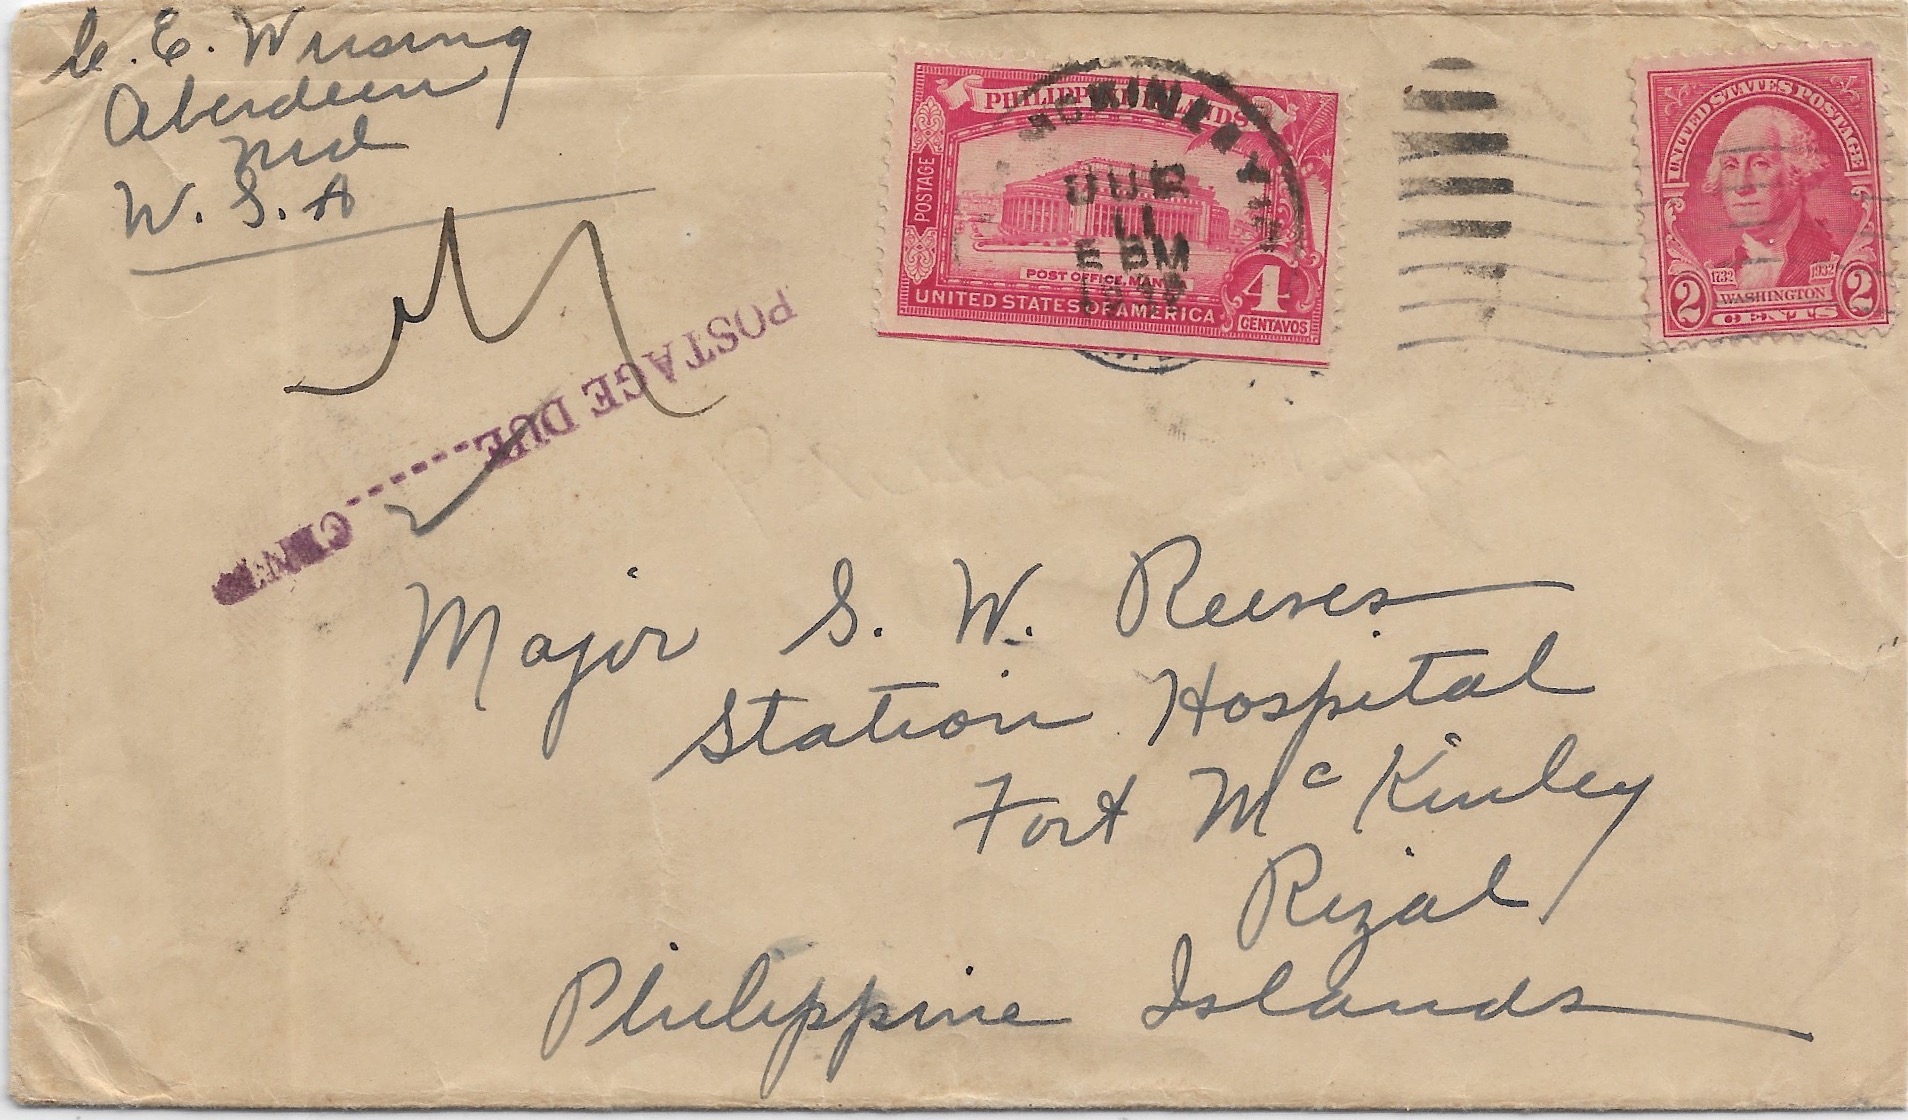 C. E. Wissing
Aberdeen
Md
U. S. A
PHILIPPINE ISLANDS
POSTAGE
POST OFFICE, MANILA
UNITED STATES OF AMERICA
4
CENTAVOS
UNITED STATES POSTAGE
1732
1932
2
WASHINGTON
2
CENTS
POSTAGE DUE
Major S. W. Reeves
Station Hospital
Fort McKinley
Rizal
Philippine Islands